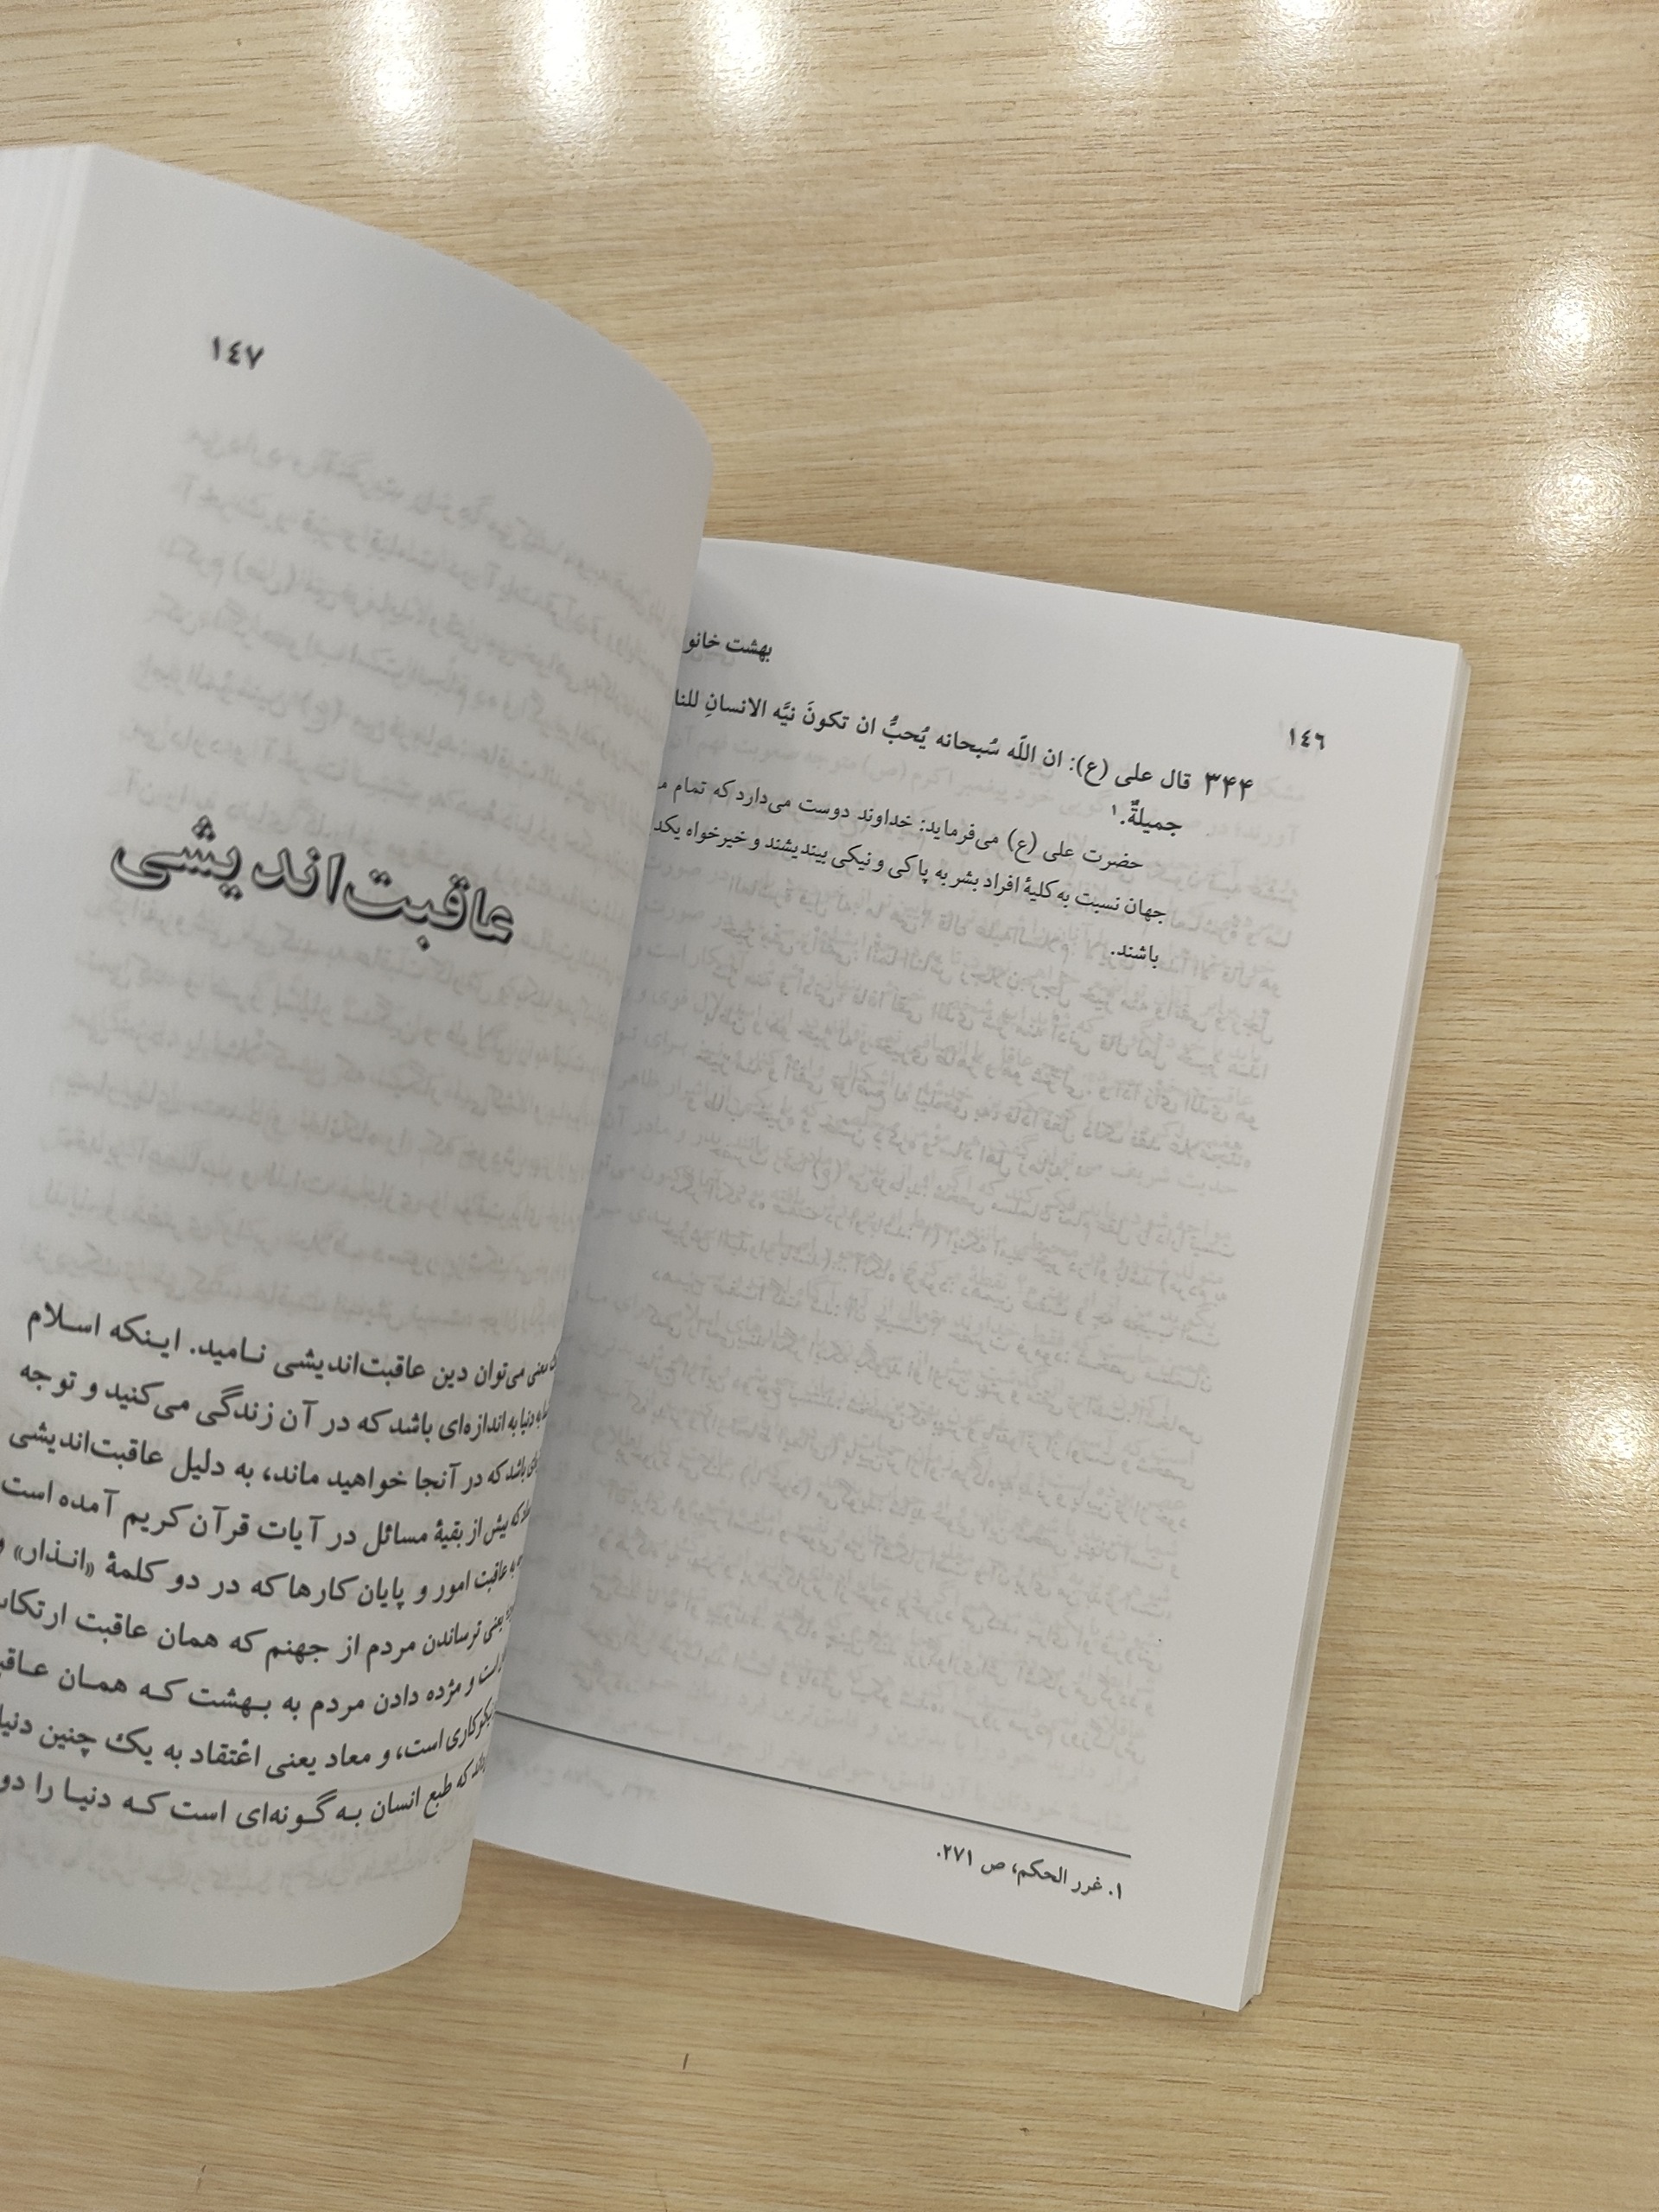 ١٤٦
بهشت خانو
٣۴۴ قال علی (ع): ان اللّه سُبحانه یُحبُّ ان تکونَ نیَّه الانسانِ للنا
جمیلةٌ.١
حضرت علی (ع) می‌فرماید: خداوند دوست می‌دارد که تمام م
جهان نسبت به کلیهٔ افراد بشر به پاکی و نیکی بیندیشند و خیرخواه یکد
باشند.
١. غرر الحکم، ص ٢٧١.
١٤٧
عاقبت‌اندیشی
معنی می‌توان دین عاقبت‌اندیشی نامید. اینکه اسلام
دنیا به اندازه‌ای باشد که در آن زندگی می‌کنید و توجه
باشد که در آنجا خواهید ماند، به دلیل عاقبت‌اندیشی
که بیش از بقیهٔ مسائل در آیات قرآن کریم آمده است
به عاقبت امور و پایان کارها که در دو کلمهٔ «انذار» و
یعنی ترساندن مردم از جهنم که همان عاقبت ارتکاب
است و مژده دادن مردم به بهشت که همان عاقب
نیکوکاری است، و معاد یعنی اعتقاد به یک چنین دنیا
که طبع انسان به گونه‌ای است که دنیا را دو